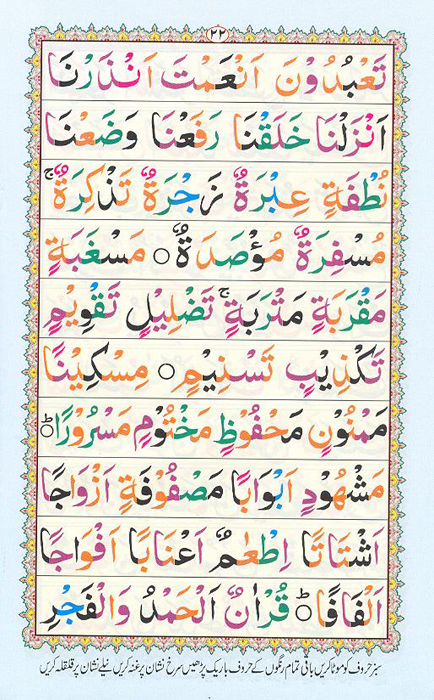 ٢٢
تَعْبُدُوْنَ اَنْعَمْتَ اَنْذَرْنَا
اَنْزَلْنَا خَلَقْنَا رَفَعْنَا وَضَعْنَا
نُطْفَةٍ عِبْرَةٌ زَجْرَةٌ تَذْكِرَةٌ ۚ
مُسْفِرَةٌ مُؤْصَدَةٌ ○ مَسْغَبَةٍ
مَقْرَبَةٍ مَتْرَبَةٍ ۚ تَضْلِيْلٍ تَقْوِيْمٍ
تَكْذِيْبٍ تَسْنِيْمٍ ○ مِسْكِيْنًا
مَمْنُوْنٍ مَحْفُوْظٍ مَخْتُوْمٍ مَسْرُوْرًا ○ؕ
مَشْهُوْدٍ اَبْوَابًا مَصْفُوْفَةٍ اَزْوَاجًا
اَشْتَاتًا اِطْعٰمٌ اَعْنَابًا اَفْوَاجًا
اَلْفَافًا ○ؕ قُرْاٰنُ اَلْحَمْدُ وَالْفَجْرِ
سبز حروف کو موٹا کریں باقی تمام رنگوں کے حروف باریک پڑھیں سرخ نشان پر غنہ کریں نیلے نشان پر قلقلہ کریں